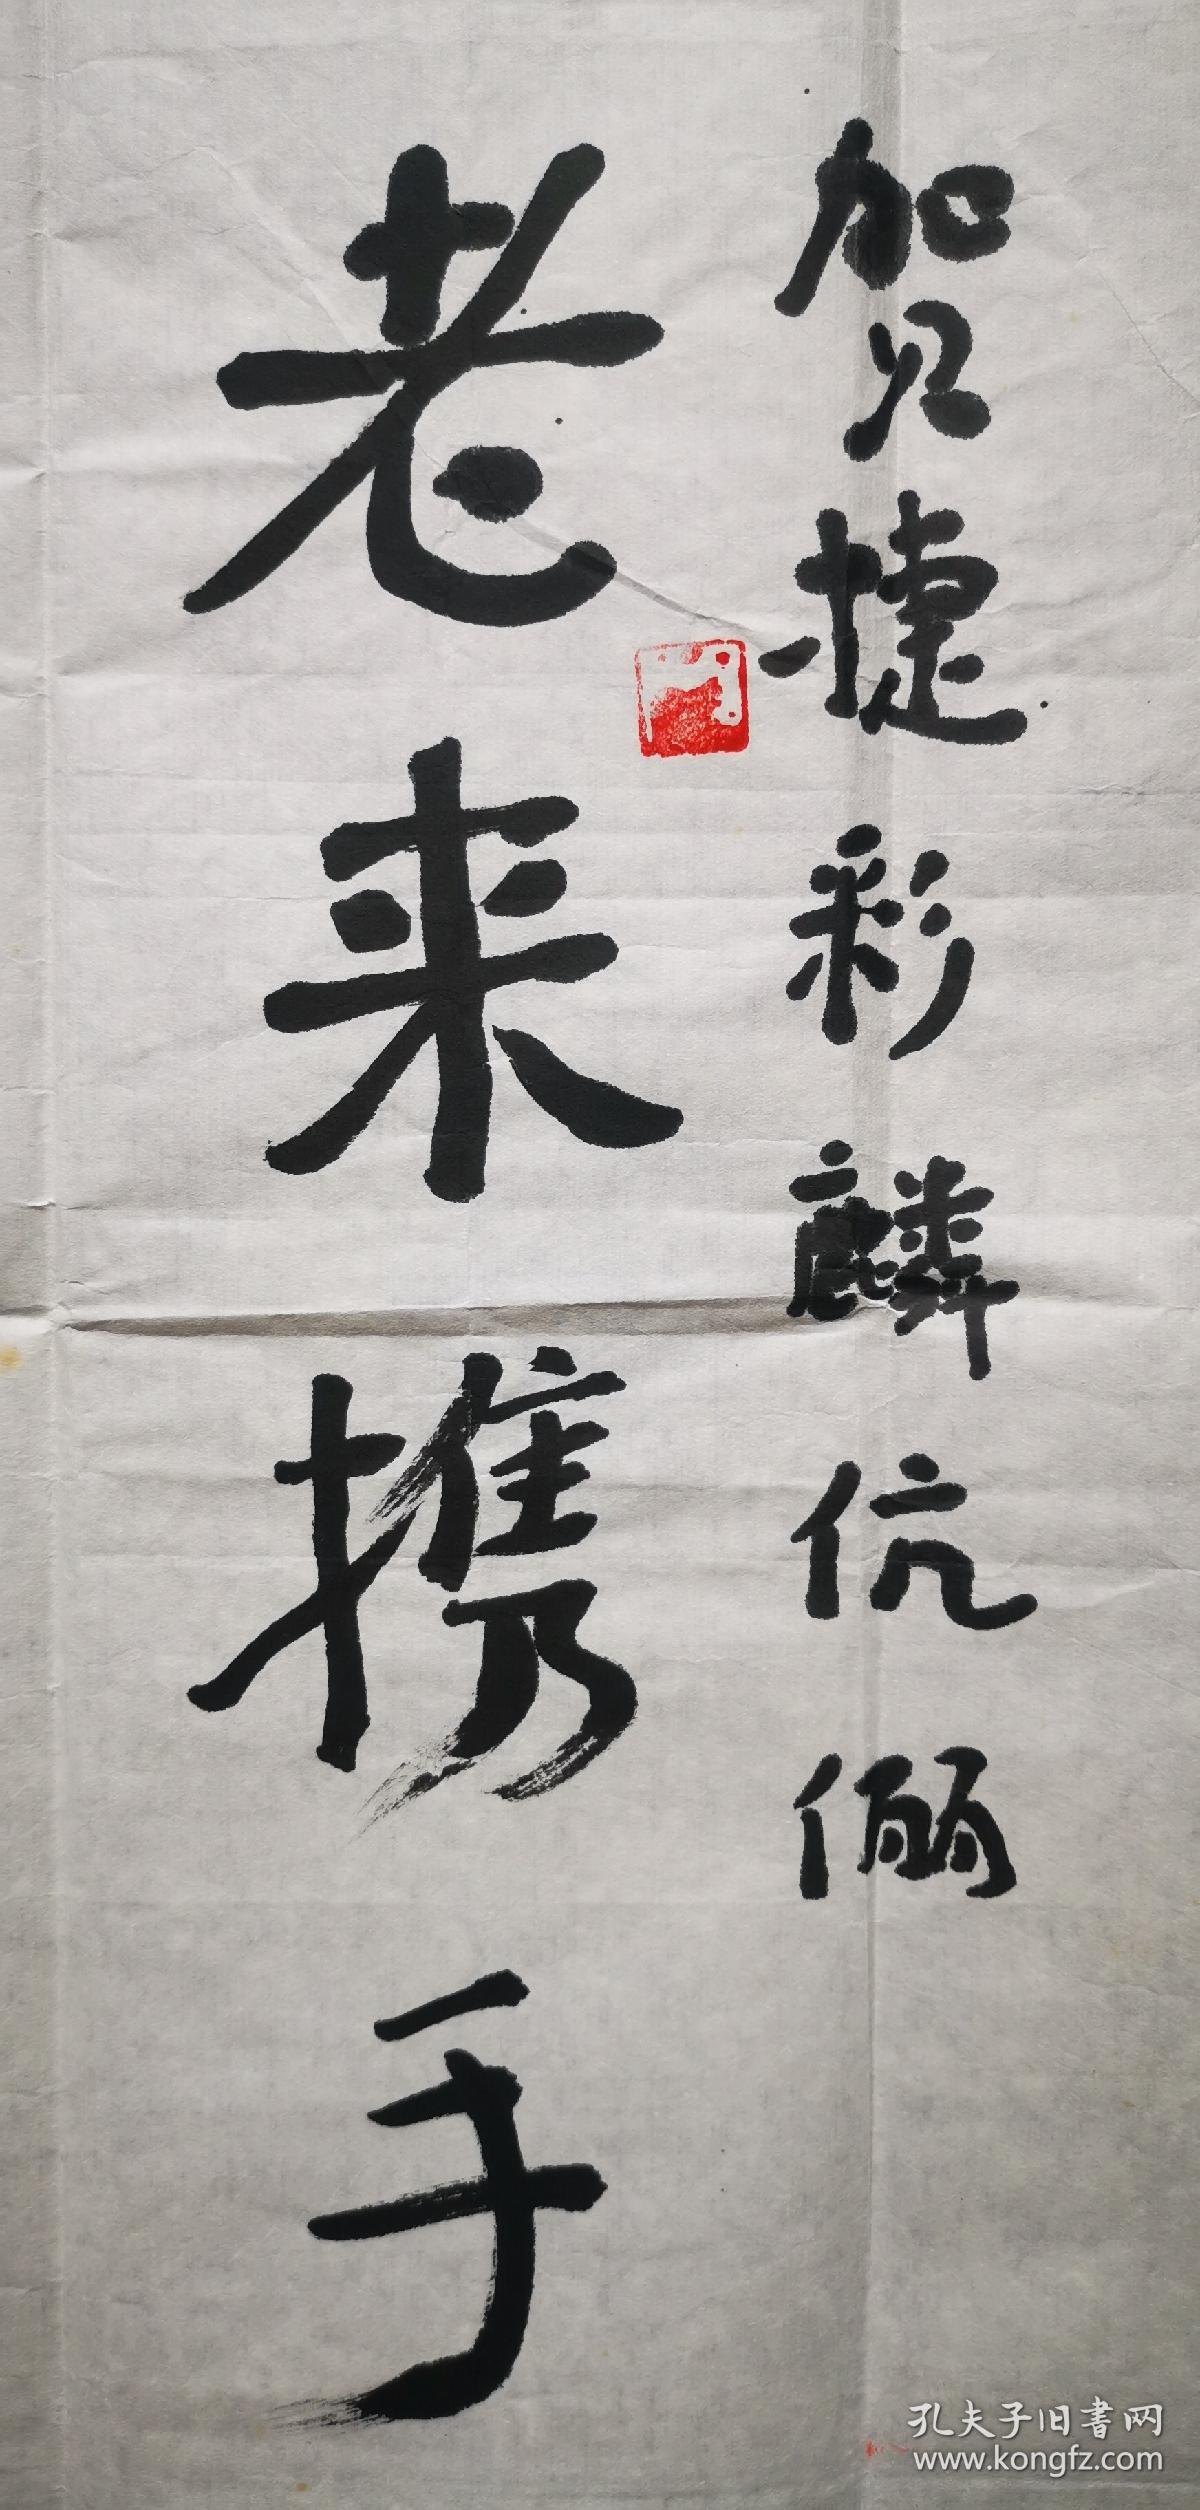 贺捷彩麟伉俪
老来携手
孔夫子旧書网
www.kongfz.com